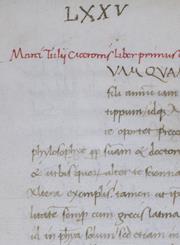 LXXV
Marci Tulij Ciceronis liber primus
VAM QUA
fili annũ iam
tippum idq. A
te oportet præce
philosophiæ ppt suam et doctor
et urbis quorum alter te scientia
altera exemplis. tamen ut ip
litatẽ semp cum grecis latina
id in phīa solum sed etiam in